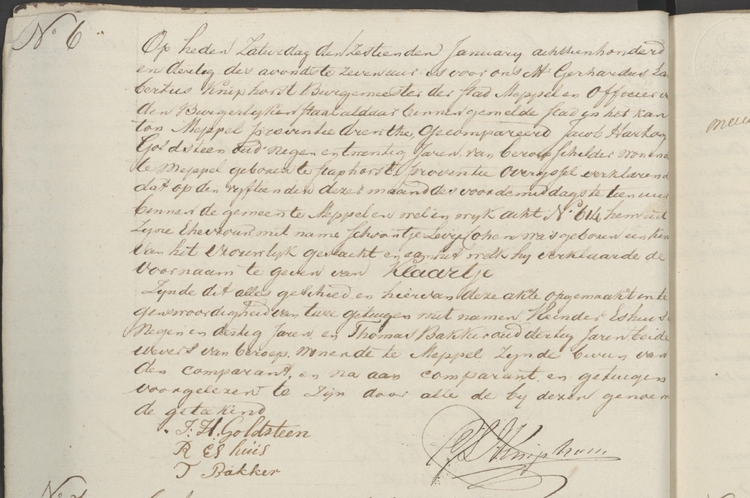 No 6
Op heden Zaturdag den zestienden January achttienhonderd
en dertig des avonds te zeven uur is voor ons Mr Gerhardus Lam
bertus Kniphorst Burgemeester der stad Meppel en Officier v
den Burgerlyken staat aldaar binnen gemelde stad in het kan
ton Meppel provintie Drenthe, Gecompareerd Jacob Hartog
Goldsteen oud negen en twentig Jaren van beroep schilder wonen
te Meppel geboren te Staphorst provintie Overyssel verklarend
dat op den vyftienden dezer maand des voordemiddags te tien uur
binnen de gemeente Meppel en wel in wyk acht No 614 hem uit
zyne Ehevrouw met name Levy Cohen was geboren een kin
van het vrouwlyk geslacht en aan het welk hy verklaarde de
voornaam te geven van Klaartje
Zynde dit alles geschied en hiervan deze akte opgemaakt in te
genwoordigheid van twee getuigen met namen Reinder Eshuis
negen en dertig Jaren en Thomas Bakker oud dertig Jaren beide
wevers van beroep, wonende te Meppel zynde van
den comparant, en na aan comparant en getuigen
voorgelezen te zyn door alle de by dezen genoem
de getekend
J. H. Goldsteen
R Es huis
T Bakker